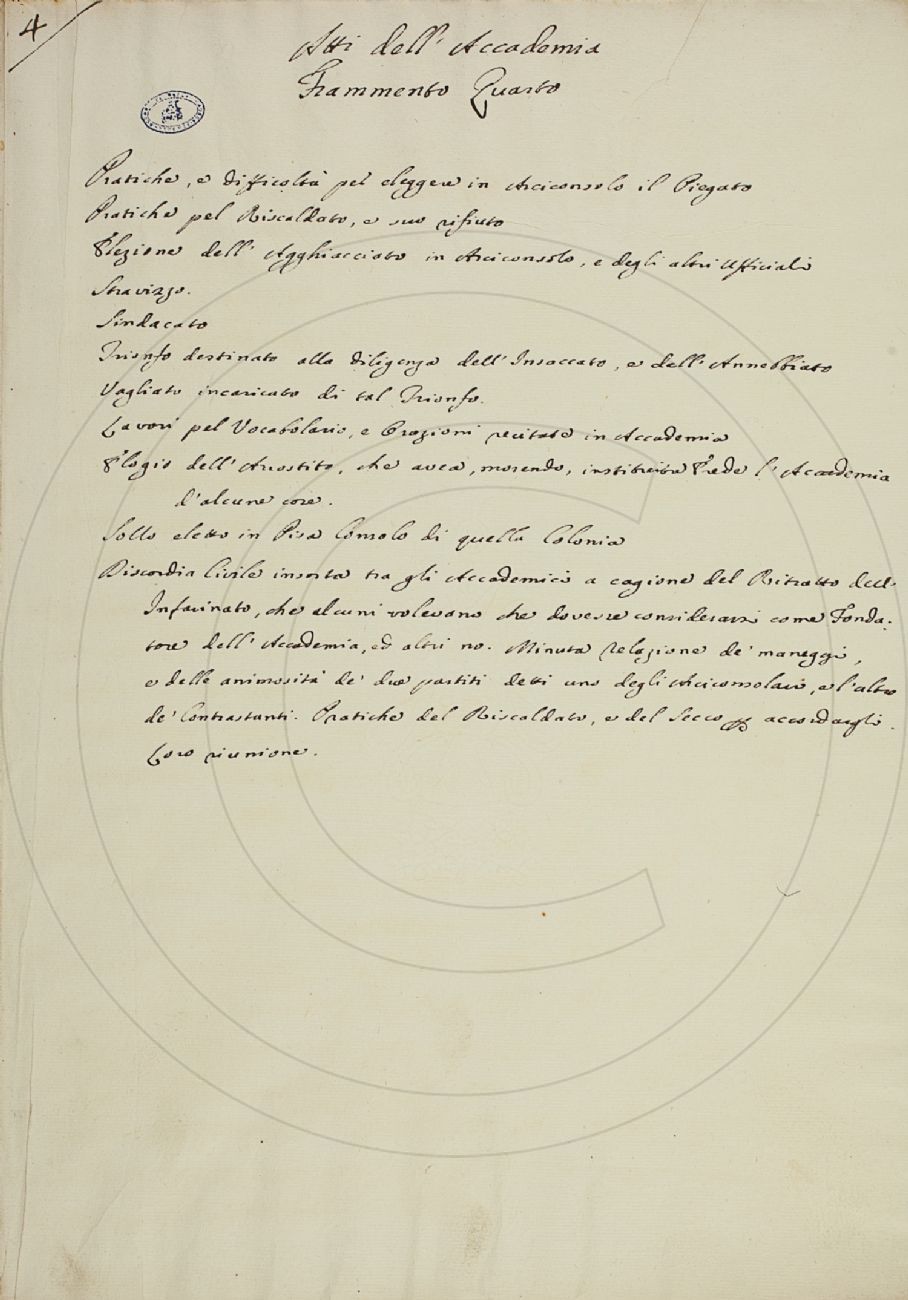 4
Atti dell'Accademia
Frammento Quarto
Pratiche, e difficoltà pel eleggere in Arciconsolo il Piegato
Pratiche pel Riscaldato, e suo rifiuto
Elezione dell'Agghiacciato in Arciconsolo, e degli altri Ufficiali
Stravizzo.
Sindacato
Trionfo destinato alla diligenza dell'Insaccato, e dell'Annebbiato
Vagliato incaricato di tal Trionfo.
Lavori pel Vocabolario, e Orazioni recitate in Accademia
Elogio dell'Arrostito, che avea, morendo, instituita Erede l'Accademia
d'alcune cose.
Sollo eletto in Pisa Consolo di quella Colonia
Discordia Civile insorta tra gli Accademici a cagione del Ritratto dell'
Infarinato, che alcuni volevano che dovesse considerarsi come Fonda-
tore dell'Accademia, ed altri no. Minuta relazione de' maneggi,
e delle animosità de' due partiti detti uno degli Arciconsolari, e l'altro
de' Contrastanti. Pratiche del Riscaldato, e del Secco p accordargli.
Loro riunione.